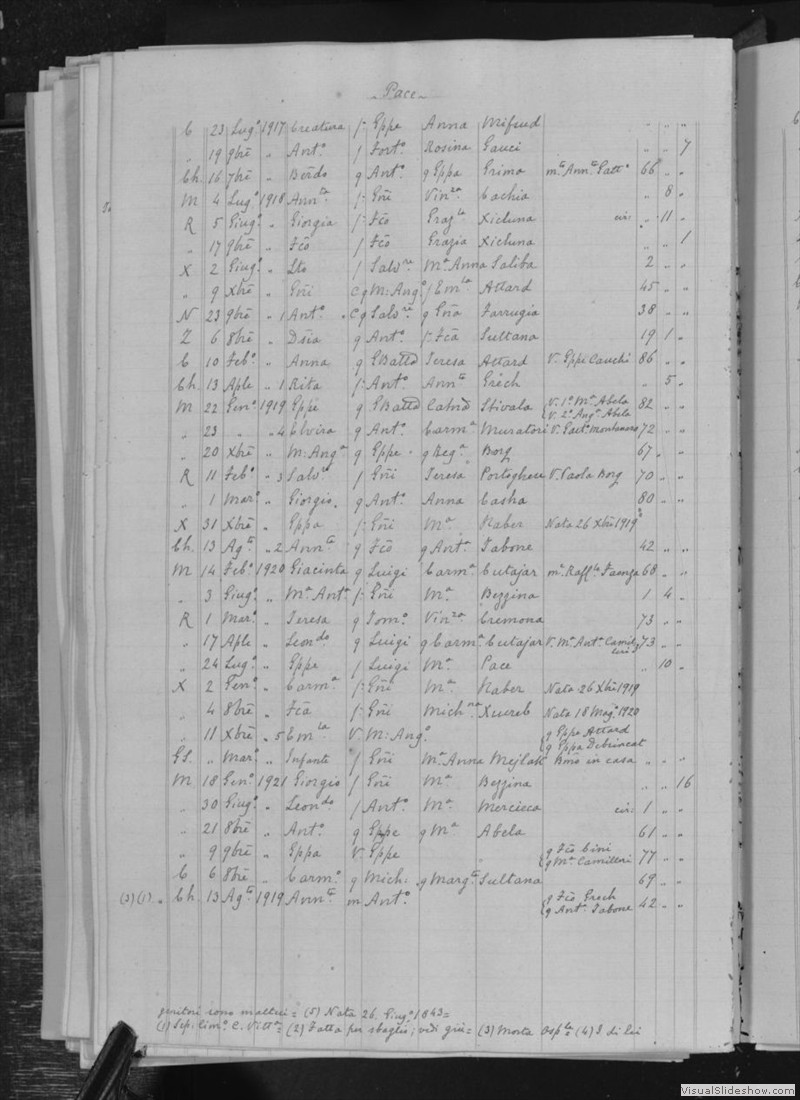 Pace
C 23 Lugo 1917 Creatura f. Gppe Anna Mifsud " " "
" 19 9bre " Anto f Forto Rosina Gauci " " 7
Ch. 16 7bre " Berdo g Anto g Gppa Grima ma Annta Gatto 66 " "
M 4 Lugo 1918 Annta f. Gni Vinza Cachia " 8 "
R 5 Giugo " Giorgia f. Fco Grazla Xicluna cir: " 11 "
" 17 9bre " Fco f Fco Grazia Xicluna " " 1
X 2 Giugo " Sto f Salvre Ma Anna Saliba 2 " "
" 9 Xbre " Gni C g M: Ango f Emla Attard 45 " "
N 23 9bre " 1 Anto C g Salvre g Gna Farrugia 38 " "
Z 6 8bre " Dsia g Anto f. Fca Sultana 19 1 "
C 10 Febo " Anna g GBatta Teresa Attard V. Gppe Cauchi 86 " "
Ch. 13 Aple " 1 Rita f. Anto Annta Grech " 5 "
M 22 Geno 1919 Gppe g GBatta Catna Stivala V. 1o Ma Abela 82 " "
V. 2o Anga Abela
" 23 " " 4 Elvira g Anto Carma Muratori V. Gaeto Montanaro 72 " "
" 20 Xbre " M: Anga g Gppe g Rega Borg 67 " "
R 11 Febo " 3 Salvra f Gni Teresa Portoghese V. Paola Borg 70 " "
" 1 Maro " Giorgio g Anto Anna Casha 80 " "
X 31 Xbre " Gppa f. Gni Ma Naber Nata 26 Xbre 1919
Ch. 13 Agto " 2 Annta g Fco g Anta Tabone 42 " "
M 14 Febo 1920 Giacinta g Luigi Carma Cutajar ma Raffle Faenza 68 " "
" 3 Giugo " Ma Anta f. Gni Ma Bezzina 1 4 "
R 1 Maro " Teresa g Tomo Vinza Cremona 73 " "
" 17 Aple " Leondo g Luigi g Carma Cutajar V. Ma Anta Camilleri 73 " "
" 24 Lugo " Gppe f Luigi Ma Pace " 10 "
X 2 Geno " Carma f. Gni Ma Naber Nata 26 Xbre 1919
" 4 8bre " Fca f. Gni Michna Xuereb Nata 18 Mago 1920
" 11 Xbre " 5 Emla V. M: Ango g Gppe Attard
g Gppa Debrincat
GS. " Maro " Infante f Gni Ma Anna Mejlak Bmo in casa " " "
M 18 Geno 1921 Giorgio f Gni Ma Bezzina " " 16
" 30 Giugo " Leondo f Anto Ma Mercieca cir: 1 " "
" 21 8bre " Anto g Gppe g Ma Abela 61 " "
" 9 9bre " Gppa V. Gppe g Fco Cini
g Ma Camilleri 77 " "
C 6 8bre " Carmo g Mich: g Margta Sultana 69 " "
(3) (1) " Ch. 13 Agto 1919 Annta m Anto g Fco Grech
g Anta Tabone 42 " "
genitori sono maltesi = (5) Nata 26 Giugo 1843 =
(1) Sep: Cimo C. Vitta = (2) Fatta per sbaglio; vedi giù = (3) Morta Osple (4) S. di lei
VisualSlideshow.com